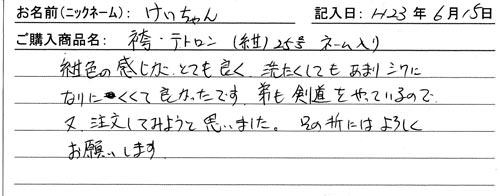 お名前(ニックネーム): けいちゃん 記入日: H23年6月15日
ご購入商品名: 袴・テトロン(紺)25号 ネーム入り
紺色の感じがとても良く、洗たくしてもあまりシワに
なりにくくて良かったです。弟も剣道をやっているので、
又、注文してみようと思いました。その折にはよろしく
お願いします